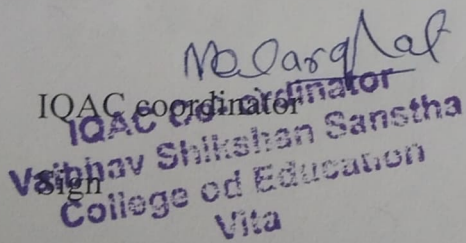 IQAC coordinator
IQAC Co-ordinator
Vaibhav Shikshan Sanstha
Sign
College od Education
Vita